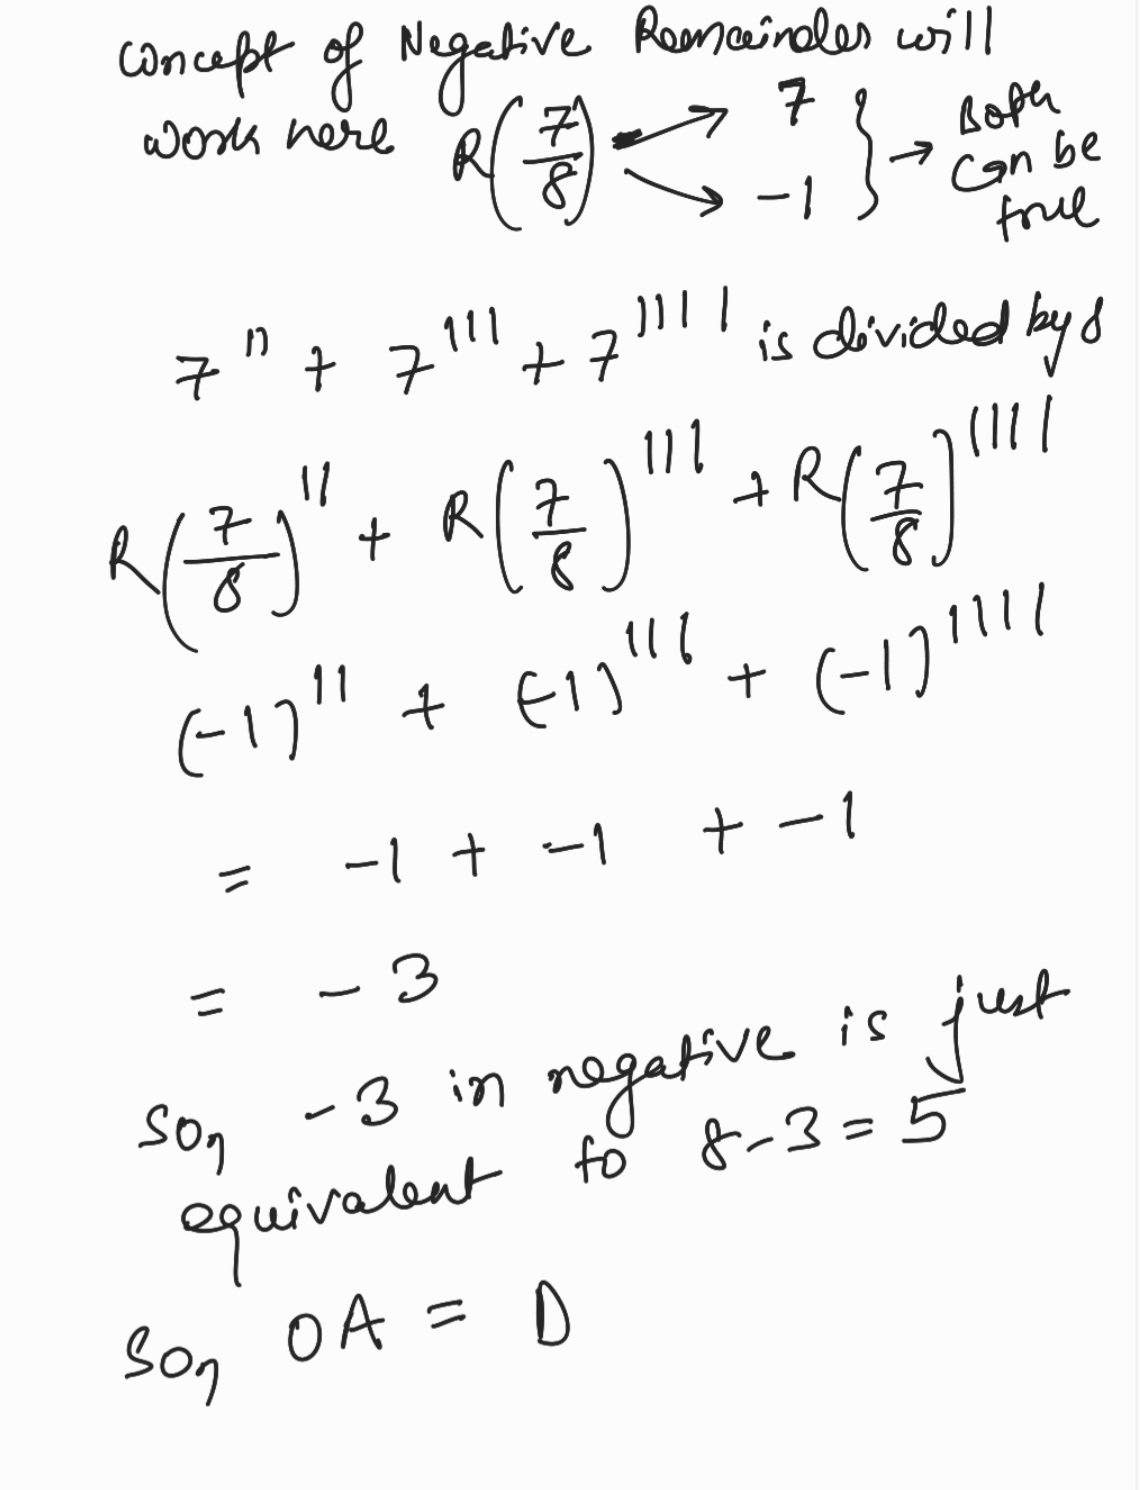 Concept of Negative Remainder will
work here R(7/8) → 7
→ -1 } → Both can be true
7^11 + 7^111 + 7^1111 is divided by 8
R(7/8)^11 + R(7/8)^111 + R(7/8)^1111
(-1)^11 + (-1)^111 + (-1)^1111
= -1 + -1 + -1
= -3
So, -3 in negative is just
equivalent to 8-3 = 5
So, OA = D